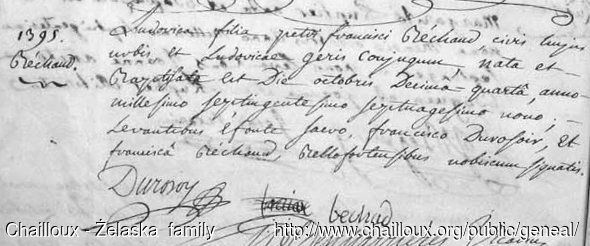 1395.
Béchaud.
Ludovica filia petri francisci Béchaud, civis hujus
urbis et Ludovicae geris conjugum, nata et
Baptisata est Die octobris Decimâ quartâ, anno
millesimo septingentesimo septuagesimo nono; -
Levantibus é fonte sacro, francisco Durosoir, Et
franciscâ Béchaud, Bellofortensibus nobiscum signatis.
Durosoy bechad
Chailloux - Želaska family http://www.chailloux.org/public/geneal/